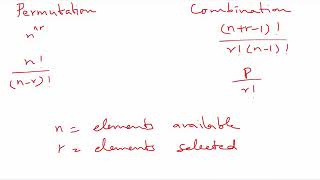 Permutation
n^nr
n!
(n-r)!
Combination
(n+r-1)!
r!(n-1)!
P
r!
n = elements available
r = elements selected